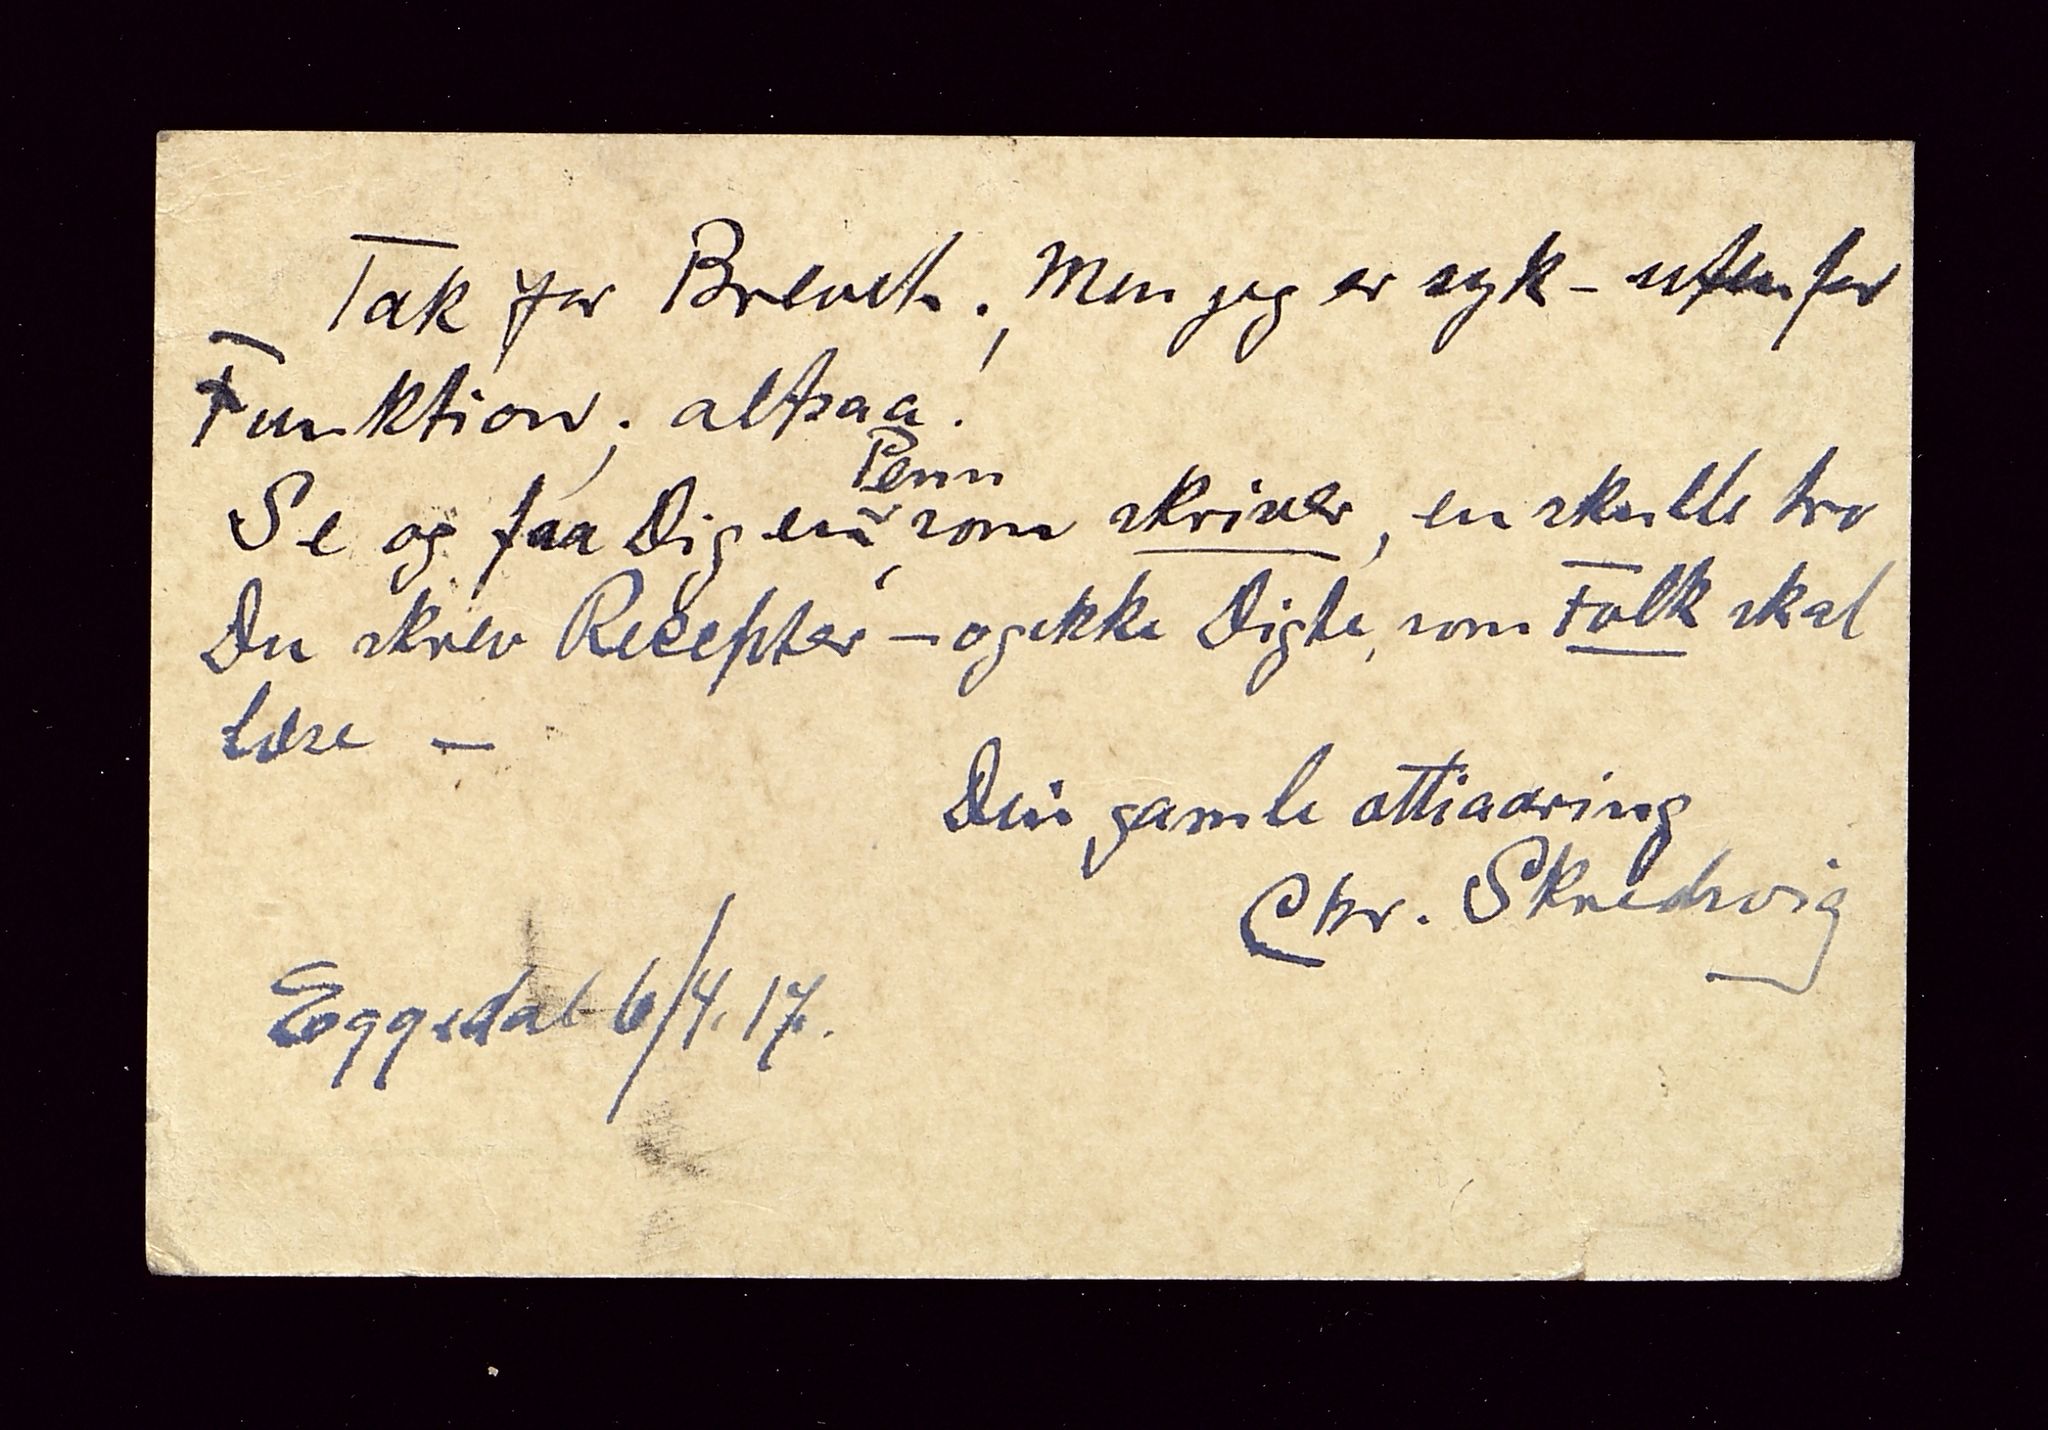 Tak for Brevet. Men jeg er syk - utenfor
Funktion, altsaa.
Penn
Se og faa Dig en, som skriver, en skulde tro
Du skrev Recepter - og ikke Digte, som Folk skal
læse -
Din gamle ottiaaring
Chr. Skredsvig
Eggedal 6/4. 17.